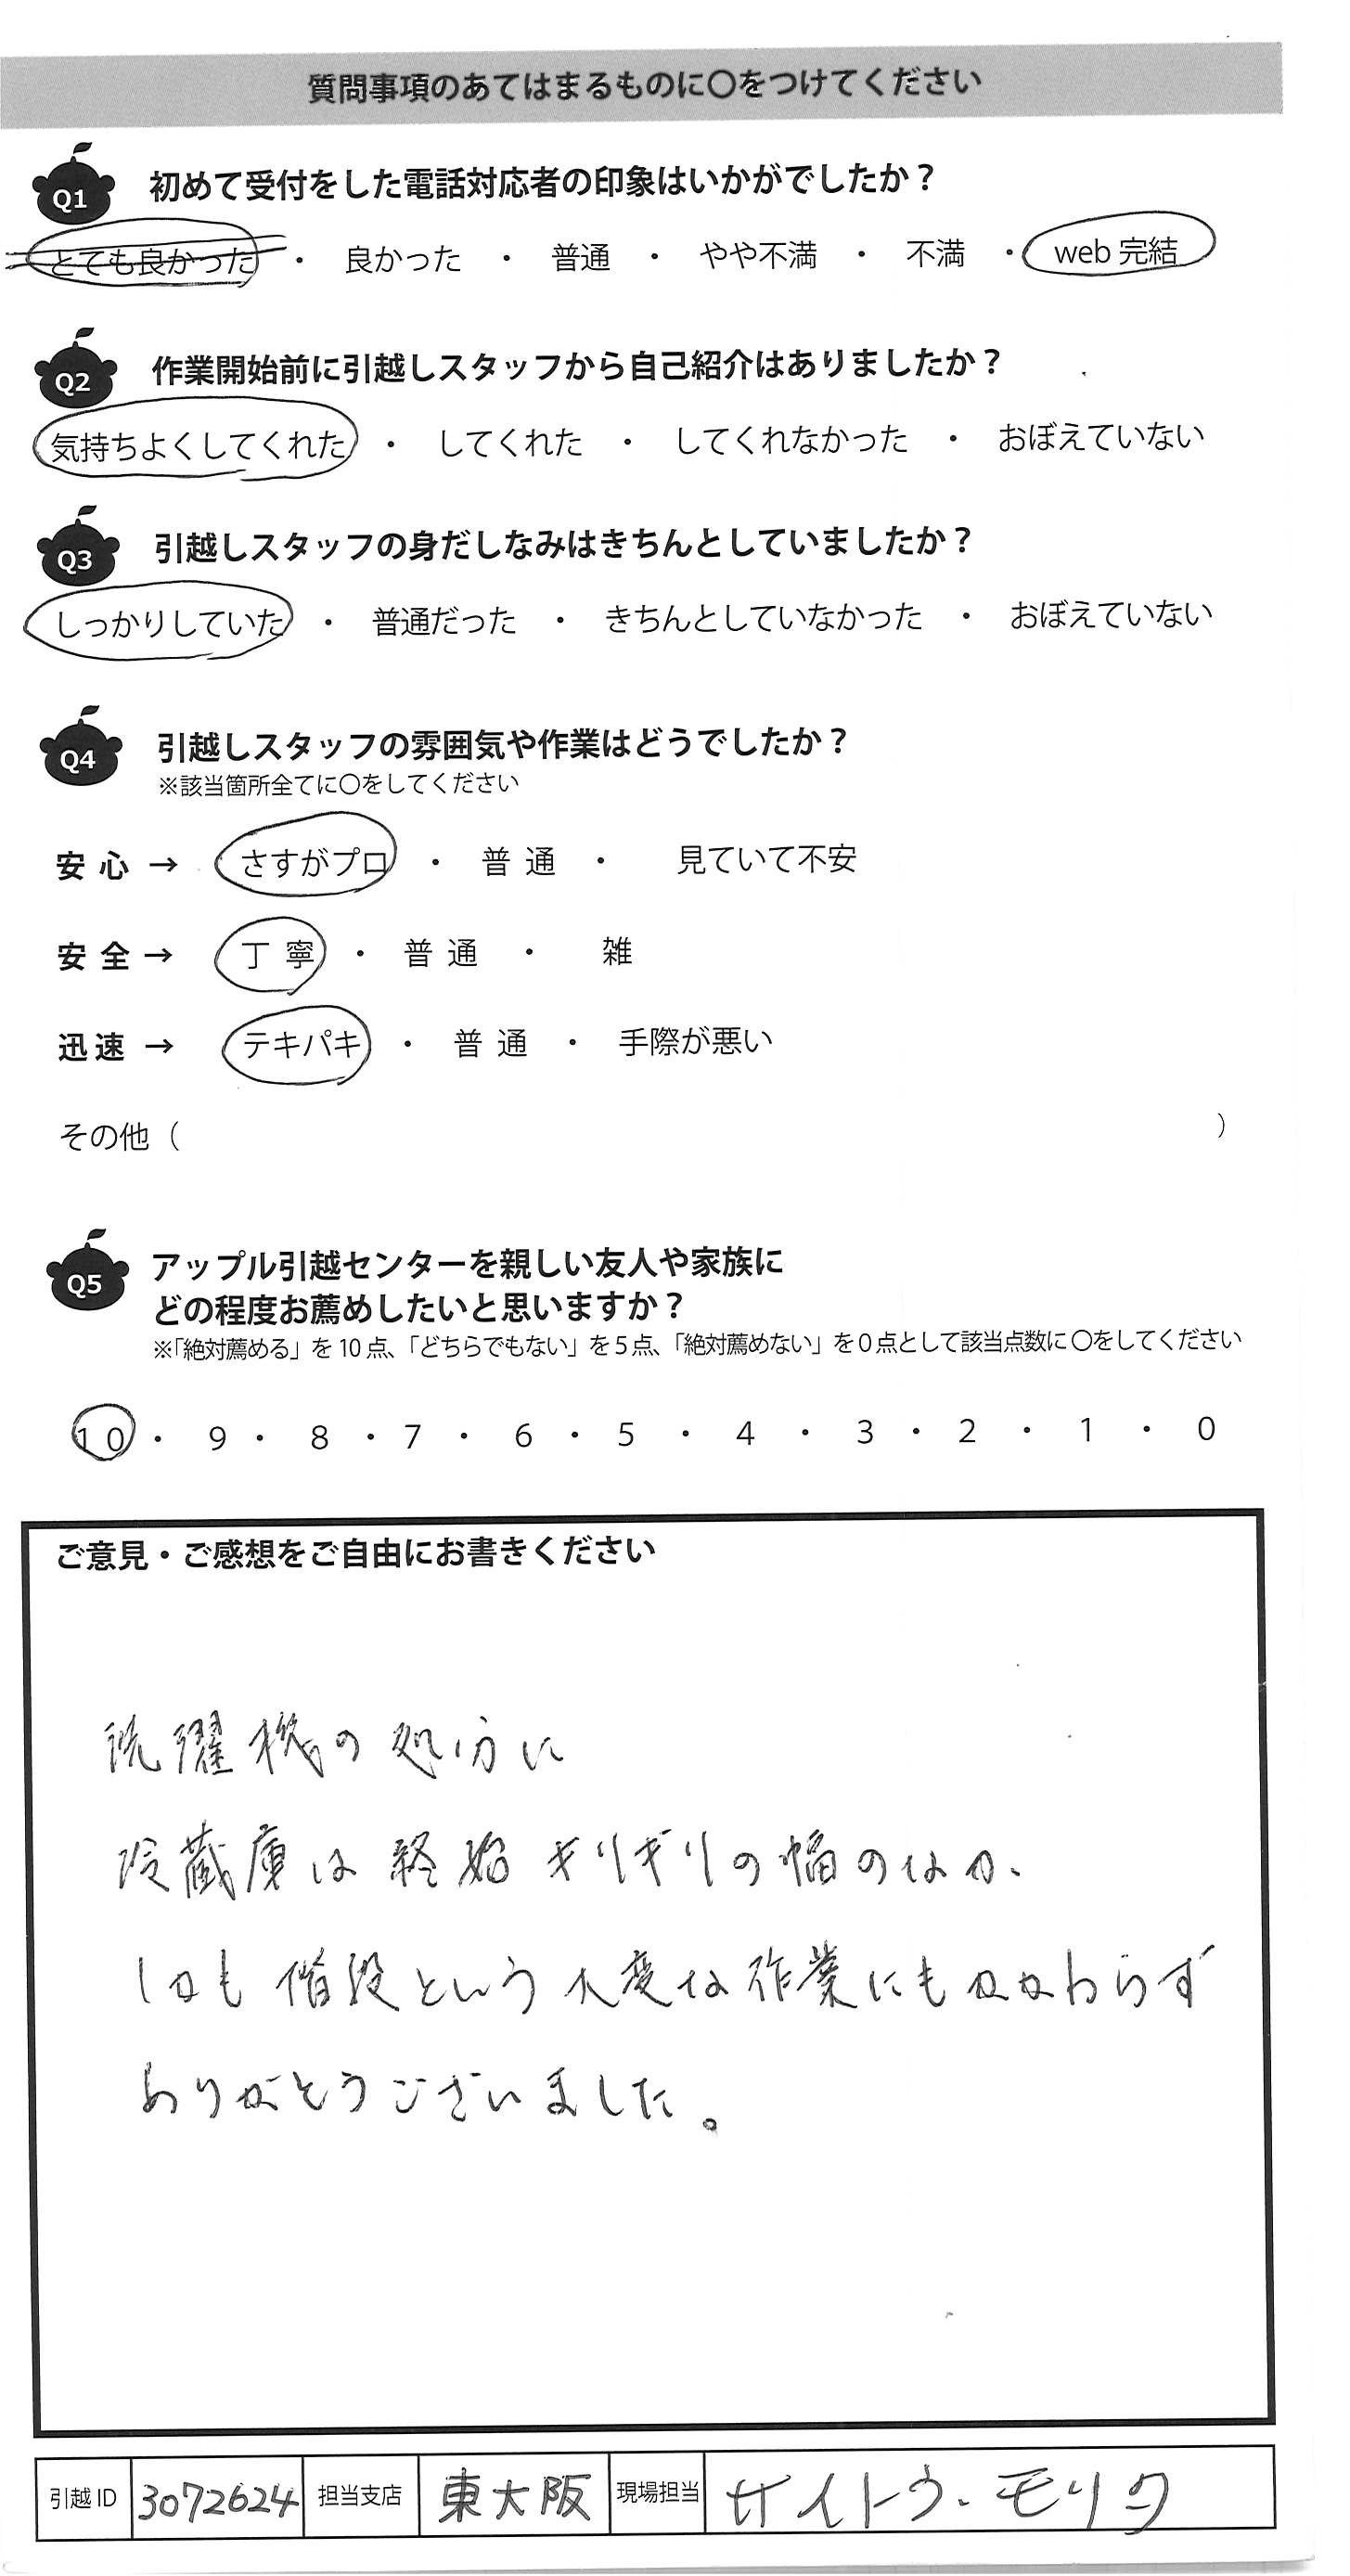 質問事項のあてはまるものに〇をつけてください
Q1 初めて受付をした電話対応者の印象はいかがでしたか？
とても良かった ・ 良かった ・ 普通 ・ やや不満 ・ 不満 ・ web 完結
Q2 作業開始前に引越しスタッフから自己紹介はありましたか？
気持ちよくしてくれた ・ してくれた ・ してくれなかった ・ おぼえていない
Q3 引越しスタッフの身だしなみはきちんとしていましたか？
しっかりしていた ・ 普通だった ・ きちんとしていなかった ・ おぼえていない
Q4 引越しスタッフの雰囲気や作業はどうでしたか？
※該当箇所全てに〇をしてください
安心 → さすがプロ ・ 普通 ・ 見ていて不安
安全 → 丁寧 ・ 普通 ・ 雑
迅速 → テキパキ ・ 普通 ・ 手際が悪い
その他（ ）
Q5 アップル引越センターを親しい友人や家族に
どの程度お薦めしたいと思いますか？
※「絶対薦める」を 10 点、「どちらでもない」を 5 点、「絶対薦めない」を 0 点として該当点数に 〇をしてください
10 ・ 9 ・ 8 ・ 7 ・ 6 ・ 5 ・ 4 ・ 3 ・ 2 ・ 1 ・ 0
ご意見・ご感想をご自由にお書きください
洗濯機の処分に
冷蔵庫は終始ギリギリの幅のなか、
しかも階段という大変な作業にもかかわらず
ありがとうございました。
引越 ID 3072624 担当支店 東大阪 現場担当 サイトウ・モリタ